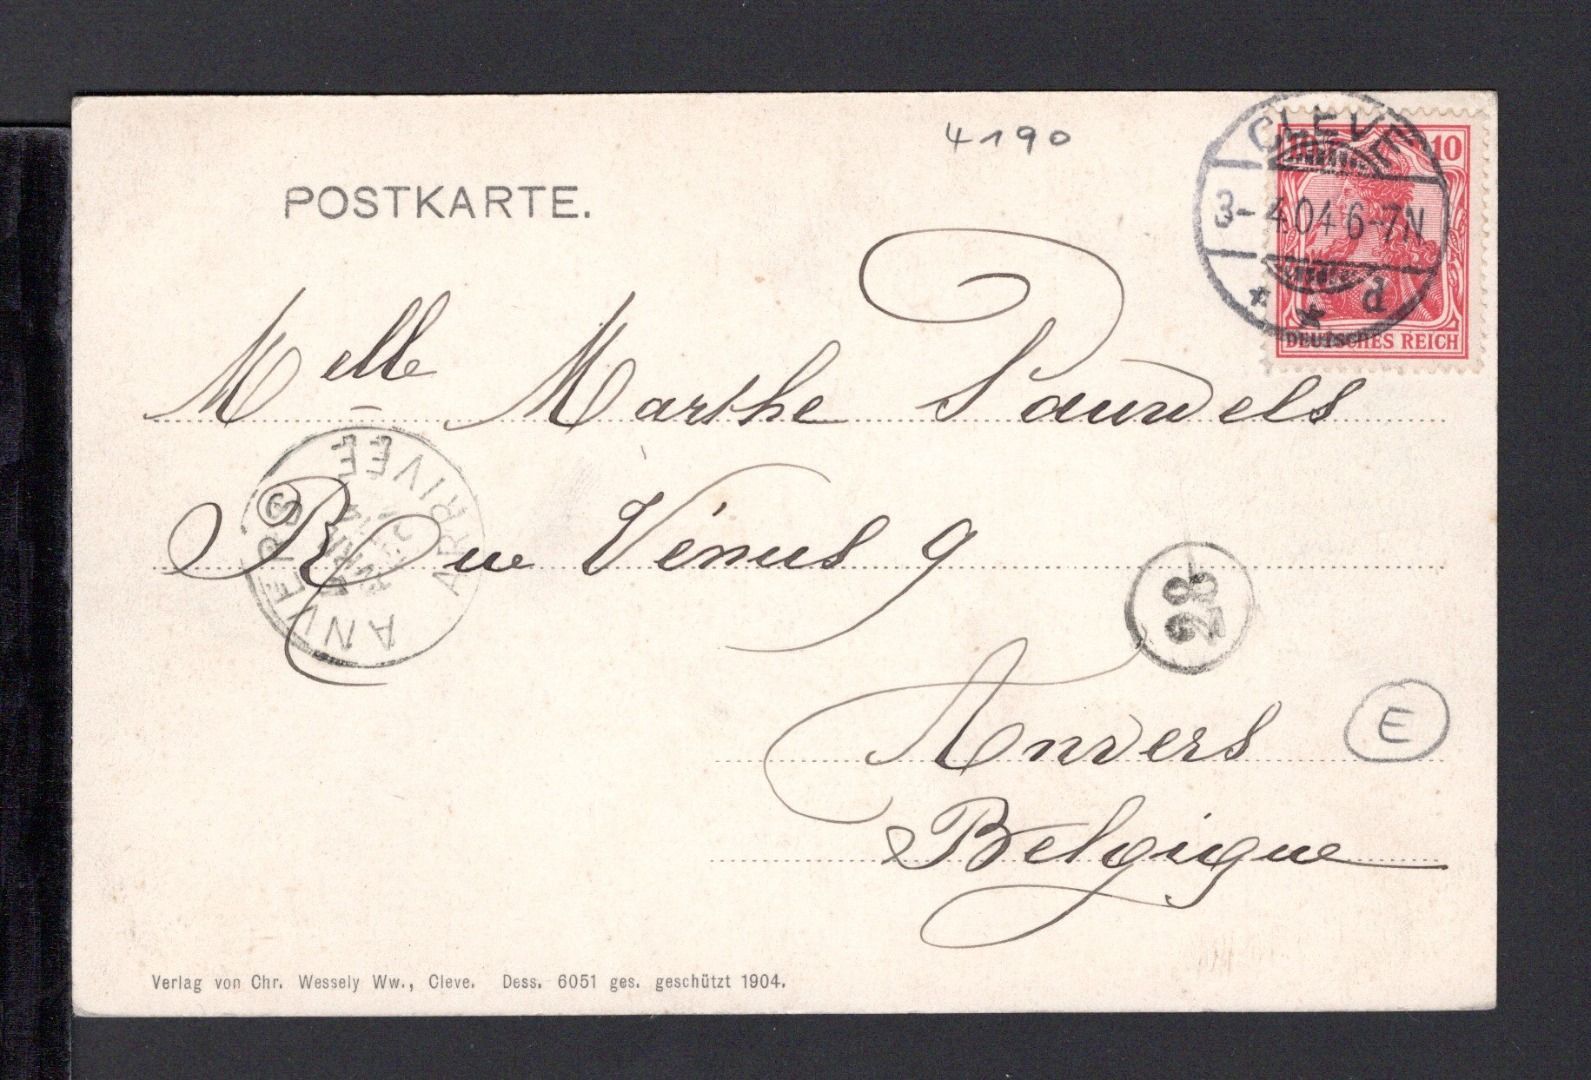 4190
POSTKARTE.
CLEVE
3-4.04.6-7N
* * d
10
DEUTSCHES REICH
Melle Marthe Pauwels
Rue Vénus 9
Anvers
Belgique
ANVERS
ARRIVÉE
28
E
Verlag von Chr. Wessely Ww., Cleve. Dess. 6051 ges. geschützt 1904.